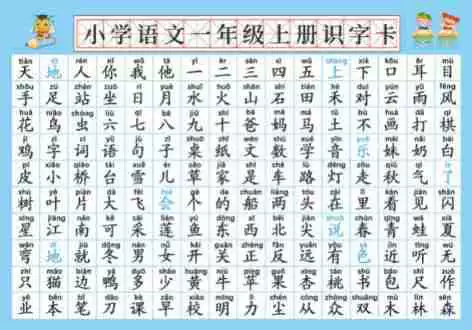 小学语文一年级上册识字卡
tiān dì rén nǐ wǒ tā yī èr sān sì wǔ shàng xià kǒu ěr mù
天 地 人 你 我 他 一 二 三 四 五 上 下 口 耳 目
shǒu zú zhàn zuò rì yuè shuǐ huǒ shān shí tián hé duì yún yǔ fēng
手 足 站 坐 日 月 水 火 山 石 田 禾 对 云 雨 风
huā niǎo chóng liù qī bā jiǔ shí bà mā mǎ tǔ bù huà dǎ qí
花 鸟 虫 六 七 八 九 十 爸 妈 马 土 不 画 打 棋
jī zì cí yǔ jù zǐ zhuō zhǐ wén shù xué yīn yuè mèi nǎi bái
鸡 字 词 语 句 子 桌 纸 文 数 学 音 乐 妹 奶 白
pí xiǎo qiáo tái xuě ér cǎo jiā shì chē lù dēng zǒu qiū qì le
皮 小 桥 台 雪 儿 草 家 是 车 路 灯 走 秋 气 了
shù yè piàn dà fēi huì gè de chuán liǎng tóu zài lǐ kàn jiàn shǎn
树 叶 片 大 飞 会 个 的 船 两 头 在 里 看 见 闪
xīng jiāng nán kě cǎi lián yú dōng xī běi jiān shuō chūn qīng wā xià
星 江 南 可 采 莲 鱼 东 西 北 尖 说 春 青 蛙 夏
wān dì jiù dōng nán nǚ kāi guān zhèng fǎn yuǎn yǒu sè jìn tīng wú
弯 地 就 冬 男 女 开 关 正 反 远 有 色 近 听 无
zhǐ māo biān yā duō shǎo huáng niú píng guǒ xìng táo shū bāo chǐ zuò
只 猫 边 鸭 多 少 黄 牛 苹 果 杏 桃 书 包 尺 作
yè běn bǐ dāo kè zǎo xiào míng lì chén cóng zhòng shuāng mù
业 本 笔 刀 课 早 校 明 力 尘 从 众 双 木